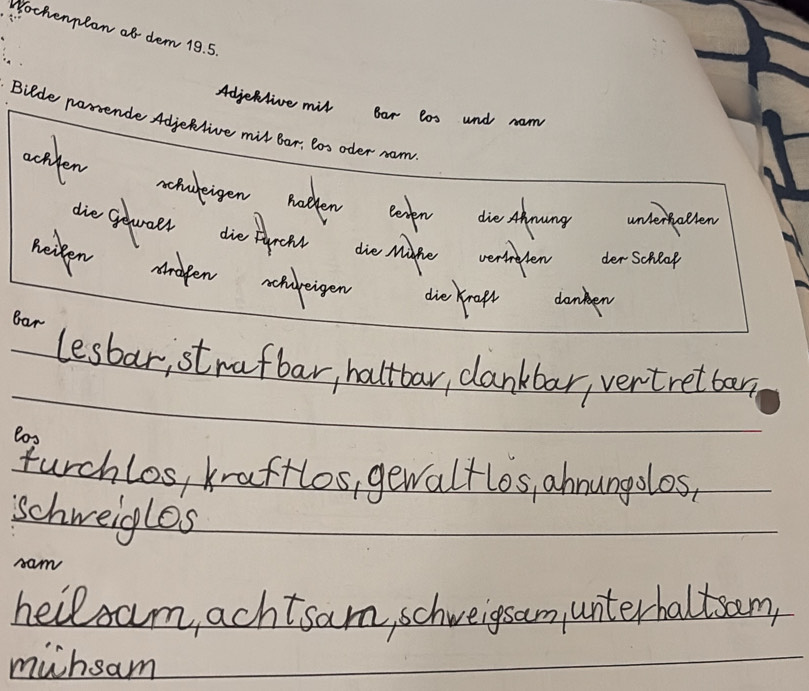 Wochenplan ab dem 19.5.
Adjektive mit bar los und sam
Bilde passende Adjektive mit bar, los oder sam.
achten schweigen halten lesen die Ahnung unterhalten
die Gewalt die Furcht die Mühe vertreten der Schlaf
heilen strafen schweigen die Kraft danken
bar
lesbar, strafbar, haltbar, dankbar, vertretbar,
los
furchlos, kraftlos, gewaltlos, ahnungslos,
schweiglos
sam
heilsam, achtsam, schweigsam, unterhaltsam,
mühsam